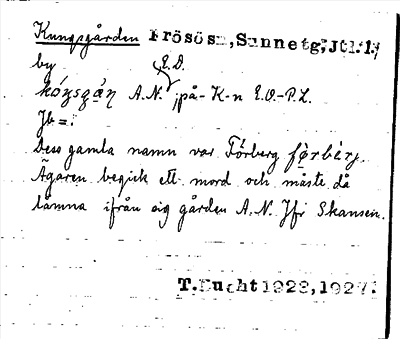 Kungsgården Frösö sn, Sunne tg, Jtl. 1.
by E.D.
kóŋsgàṇ A.N. ; på - K-n E.O.-P.L.
Jb =:
Dess gamla namn var Förberg fø̀rbèrj.
Ägaren begick ett mord och måste då
lämna ifrån sig gården A.N. Jfr Skansen.
T.Bucht 1923, 1927.